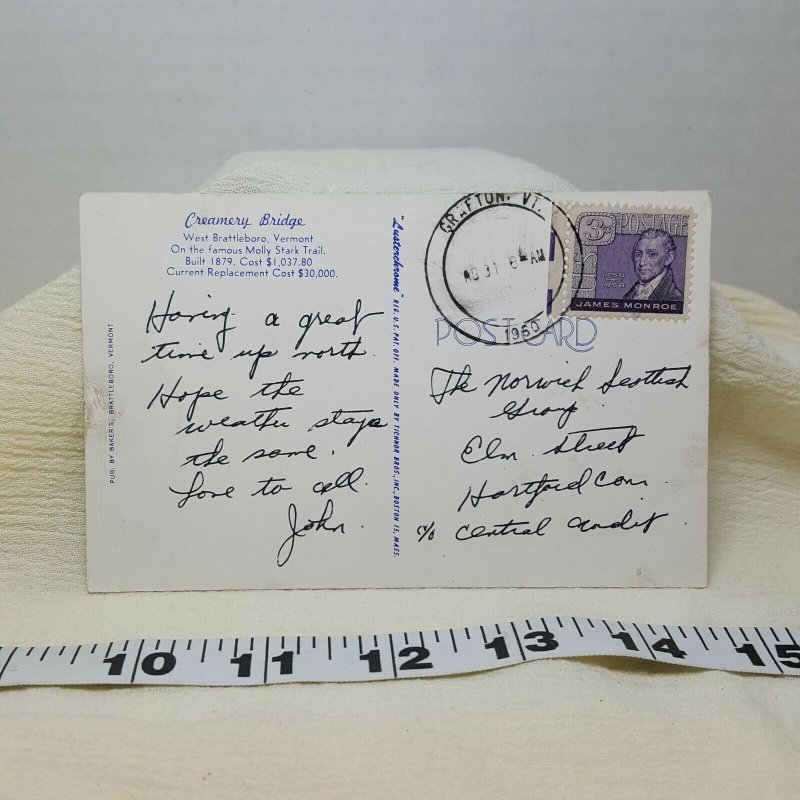 Creamery Bridge
West Brattleboro, Vermont
On the famous Molly Stark Trail.
Built 1879. Cost $1,037.80
Current Replacement Cost $30,000.
Having a great
time up north.
Hope the
weather stays
the same.
Love to all.
John.
PUB. BY BAKER'S, BRATTLEBORO, VERMONT
"Lusterchrome" REG. U.S. PAT. OFF. MADE ONLY BY TICHNOR BROS., INC., BOSTON 15, MASS.
GRAFTON, VT.
31
AM
1960
3¢
POSTAGE
1758
1958
JAMES MONROE
POST CARD
The Norwich Scottish
Group
Elm Street
Hartford Conn.
c/o Central Audit
10 11 12 13 14 15